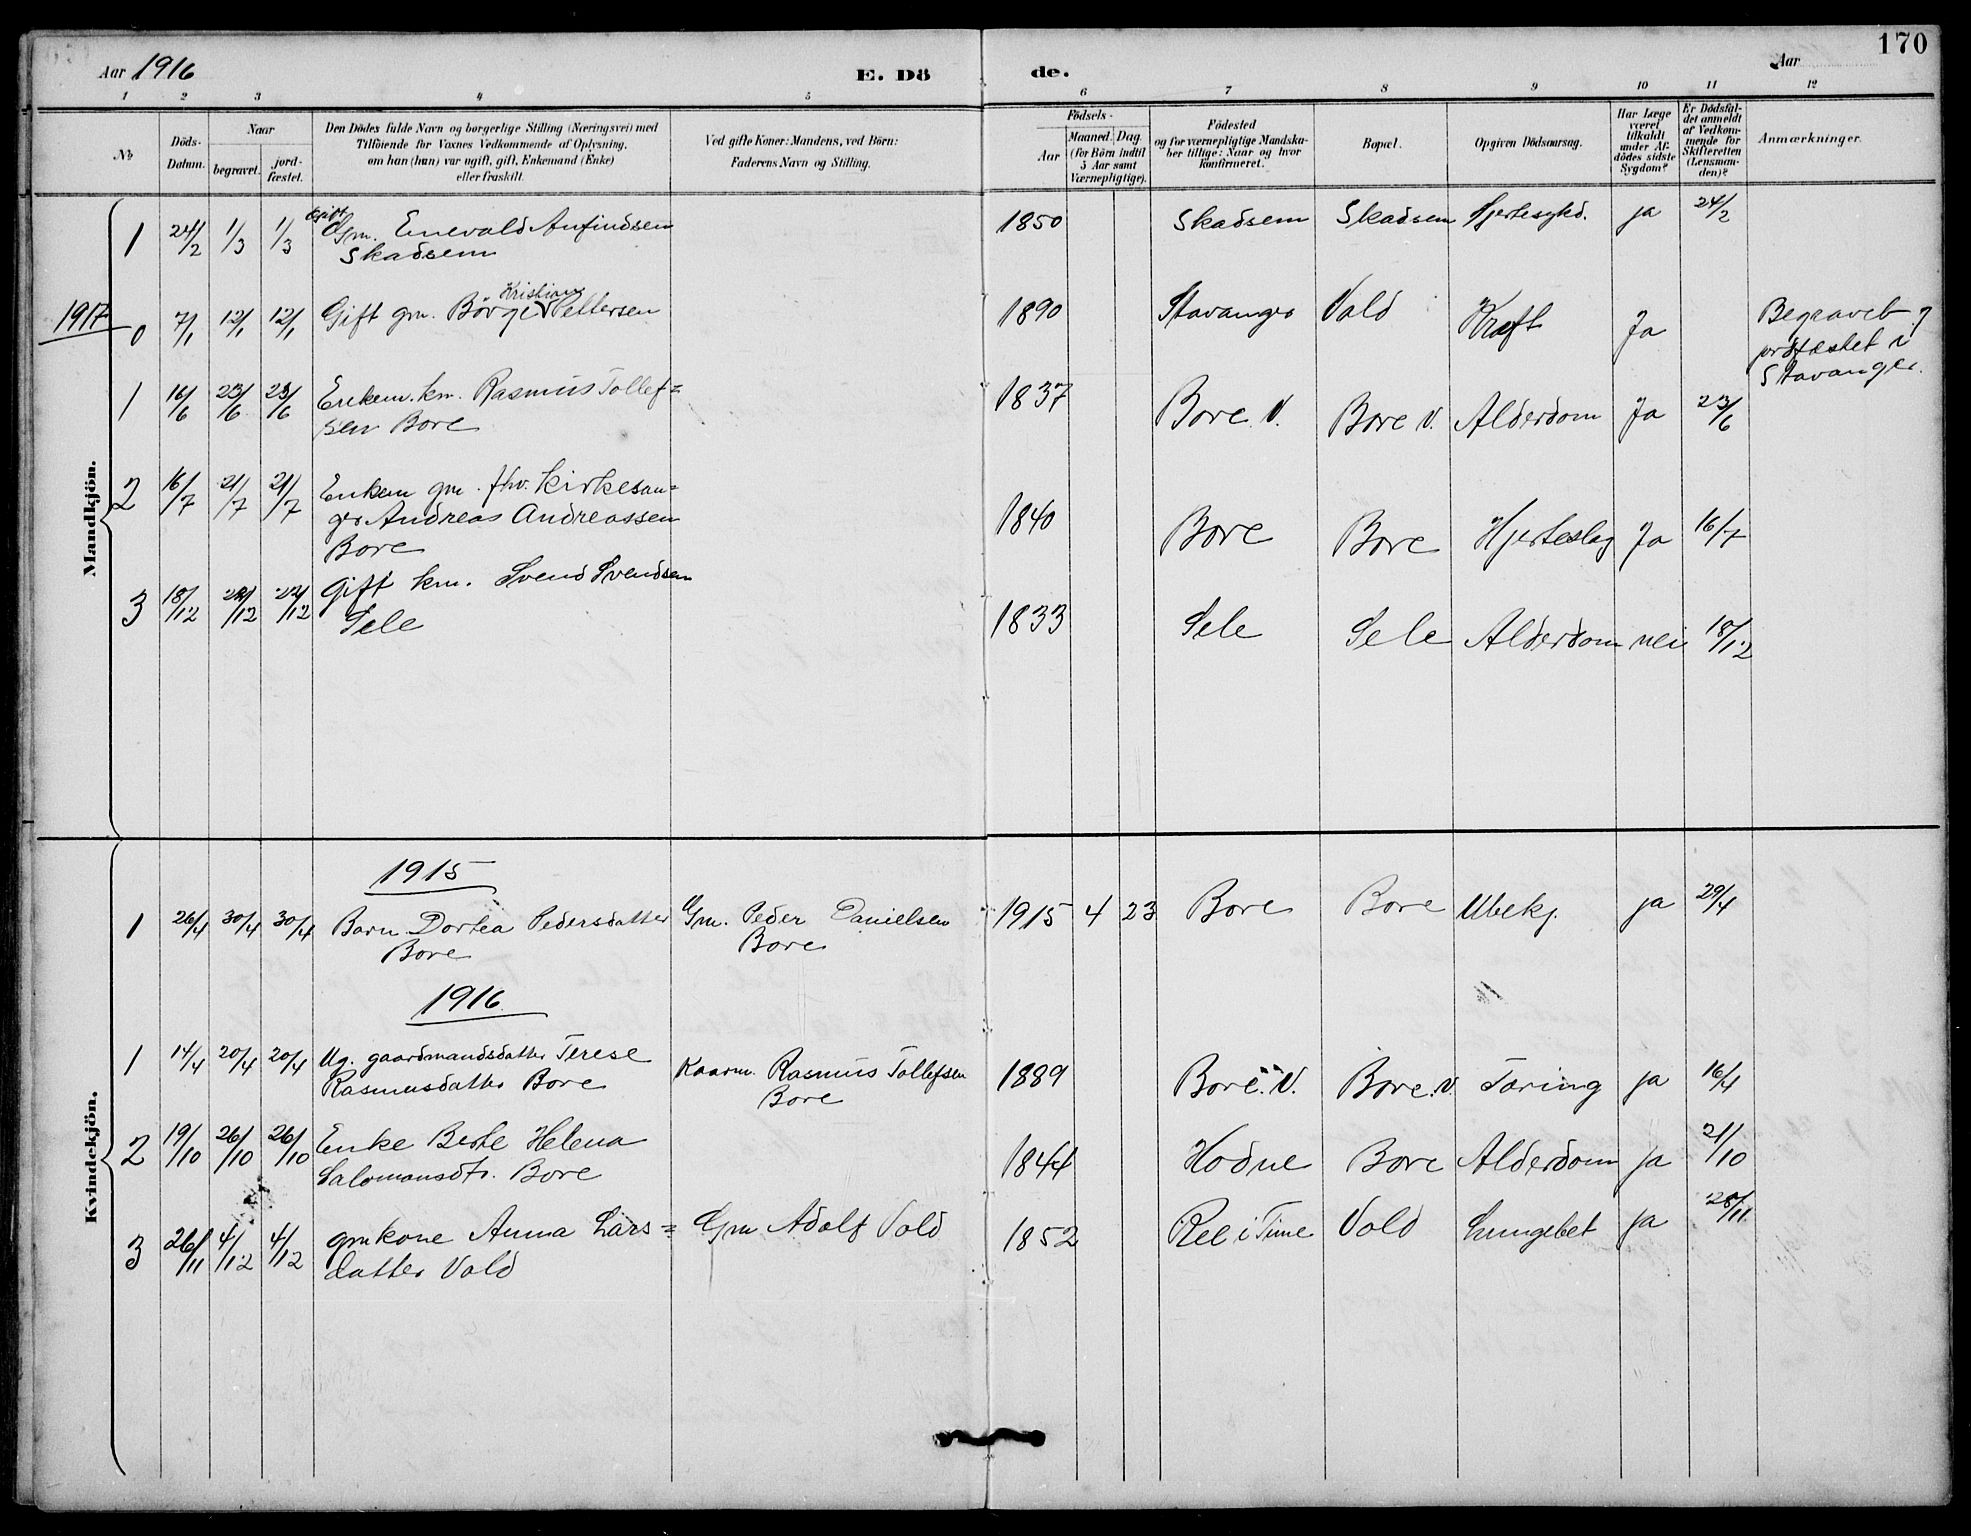 170
Aar 1916 E. Dö de. Aar
1 2 3 4 5 6 7 8 9 10 11 12
No
Döds-
Datum.
Naar
begravet.
jord-
fæstet.
Den Dödes fulde Navn og borgerlige Stilling (Næringsvei) med
Tilföiende for Voxnes Vedkommende af Oplysning,
om han (hun) var ugift, gift, Enkemand (Enke)
eller fraskilt.
Ved gifte Koner: Mandens, ved Börn:
Faderens Navn og Stilling.
Födsels-
Aar
Maaned. Dag.
(for Börn indtil
5 Aar samt
Værnepligtige).
Födested
og for værnepligtige Mandska-
ber tillige: Naar og hvor
konfirmeret.
Bopæl.
Opgiven Dödsaarsag.
Har Læge
været
tilkaldt
under Af-
dödes sidste
Sygdom?
Er Dödsfal-
det anmeldt
af Vedkom-
mende for
Skifteretten
(Lensman-
den)?
Anmærkninger.
Mandkjön.
Gift
1 24/2 1/3 1/3 Gm. Enevald Anfindsen 1850 Skadsem Skadsem Hjertesykd. ja 24/2
Skadsem
Kristian
1917 0 7/1 12/1 12/1 Gift gm. Börge Pettersen 1890 Stavanger Vold Kræft Ja Begravet og
jordfæstet i
Stavanger.
1 16/6 23/6 23/6 Enkem. km. Rasmus Tollef= 1837 Bore V. Bore V. Alderdom Ja 23/6
sen Bore
2 16/7 21/7 21/7 Enkem gm. fhv. kirkesan= 1840 Bore Bore Hjerteslag Ja 16/7
ger Andreas Andreassen
Bore
3 18/12 22/12 22/12 Gift km. Svend Svendsen 1833 Sele Sele Alderdom nei 18/12
Sele
Kvindekjön.
1915
1 26/4 30/4 30/4 Barn Dortea Pedersdatter Gm. Peder Danielsen 1915 4 23 Bore Bore Ubekj. ja 29/4
Bore Bore
1916
1 14/4 20/4 20/4 Ug. gaardmandsdatter Terese Kaarm. Rasmus Tollefsen 1889 Bore V. Bore V. Tæring ja 16/4
Rasmusdatter Bore Bore
2 19/10 26/10 26/10 Enke Berte Helena 1844 Hodne Bore Alderdom ja 21/10
Salomonsdtr. Bore
3 26/11 4/12 4/12 gmkone Anna Lars= Gm Adolf Vold 1852 Ree i Time Vold Lungebet ja 28/11
datter Vold